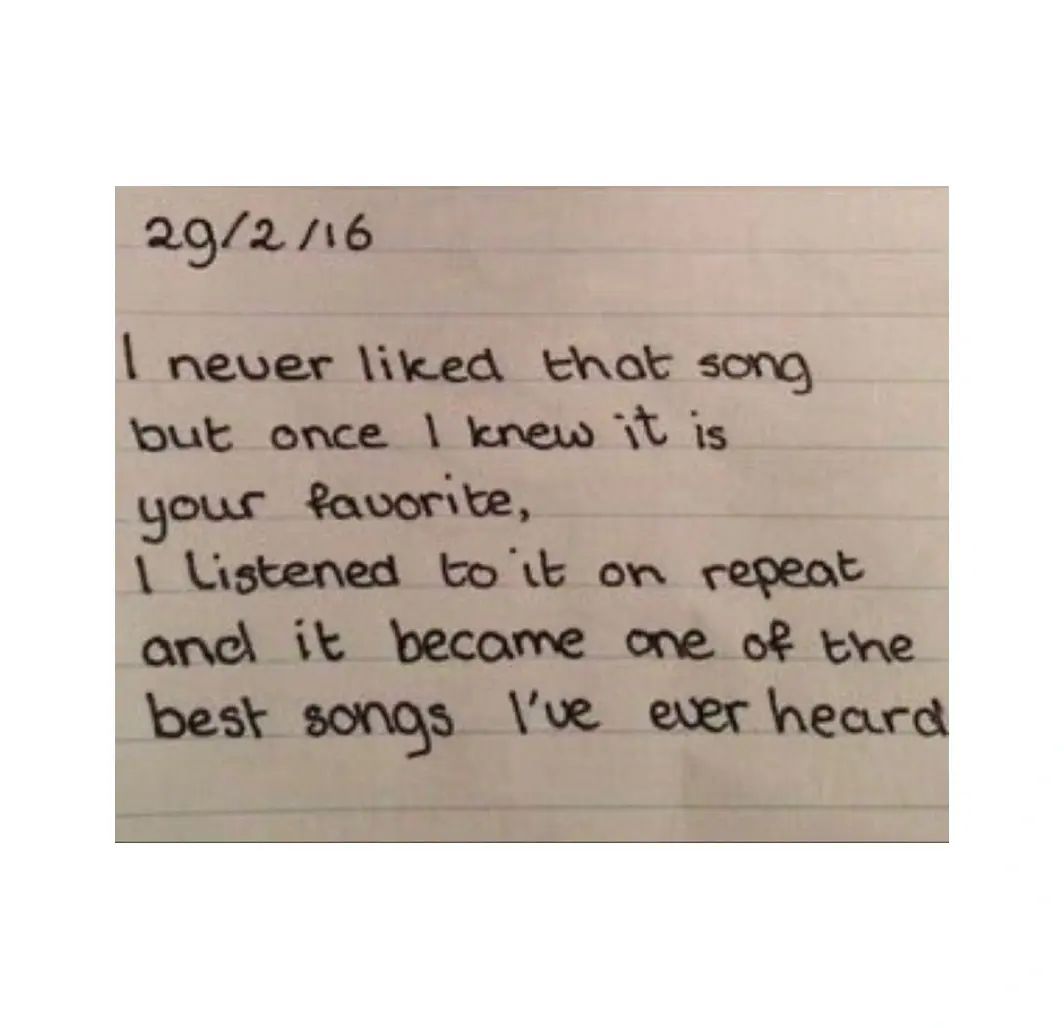 29/2/16
I never liked that song
but once I knew it is
your favorite,
I listened to it on repeat
and it became one of the
best songs I've ever heard